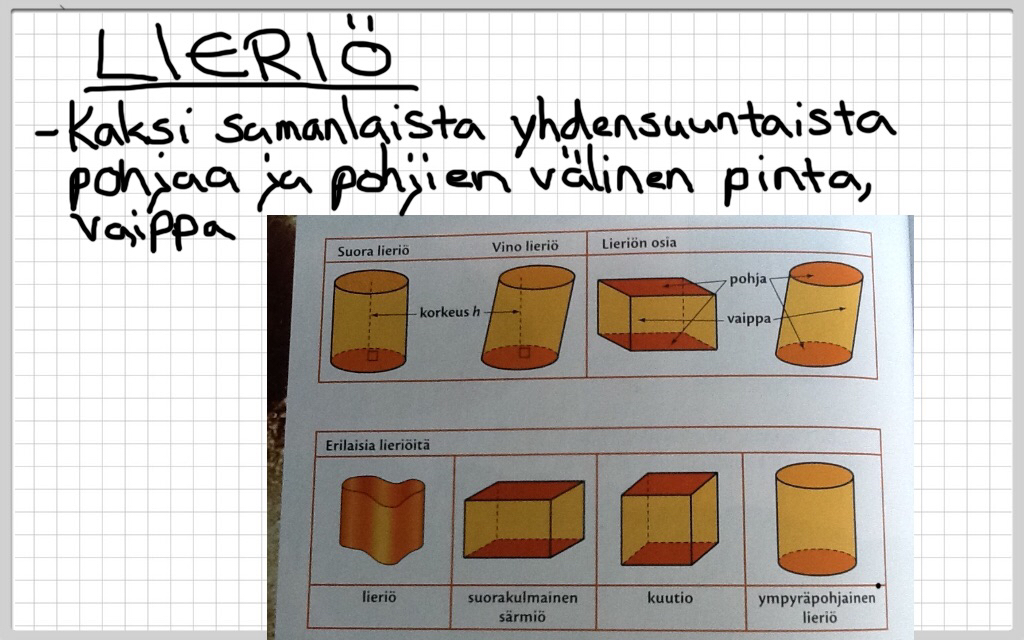 LIERIÖ
- Kaksi samanlaista yhdensuuntaista
pohjaa ja pohjien välinen pinta,
vaippa
Suora lieriö Vino lieriö Lieriön osia
pohja
korkeus h vaippa
Erilaisia lieriöitä
lieriö suorakulmainen särmiö kuutio ympyräpohjainen lieriö